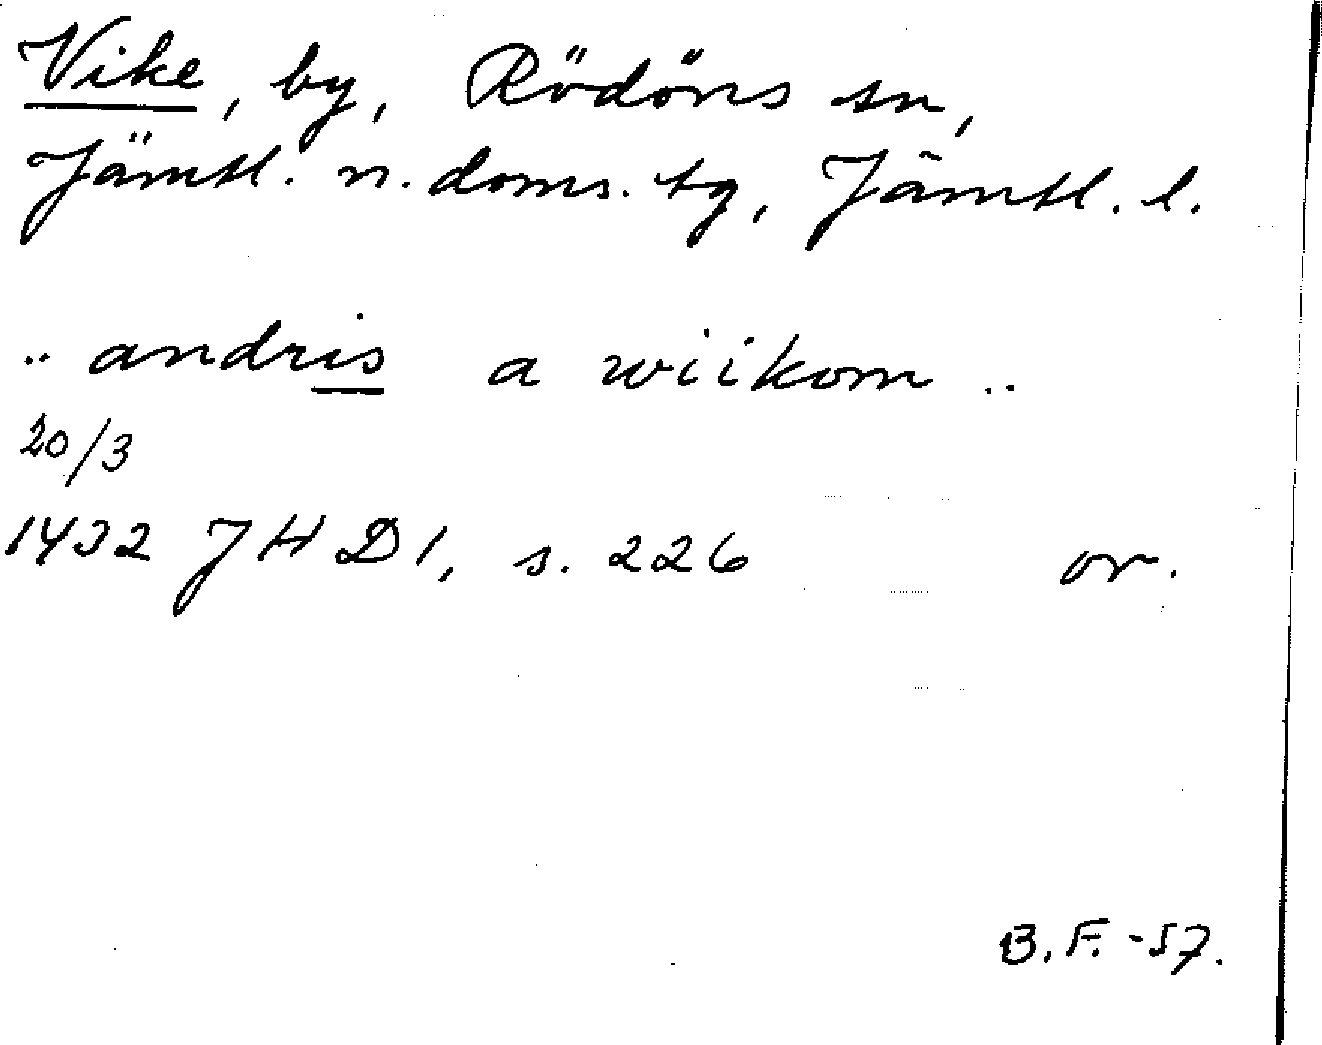 Vike, by, Rödöns sn,
Jämtl. n. doms. tg, Jämtl. l.
.. andris a wiikom ..
20/3
1432 JHD 1, s. 226 or.
B. F. -57.